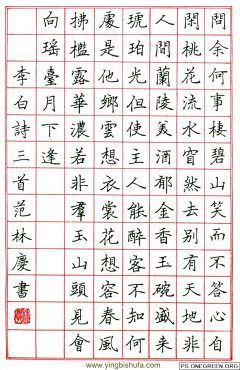 問余何事棲碧山笑而不答心自
閑桃花流水窅然去別有天地非
人間蘭陵美酒郁金香玉碗盛來
琥珀光但使主人能醉客不知何
處是他鄉雲想衣裳花想容春風
拂檻露華濃若非羣玉山頭見會
向瑤臺月下逢
李白詩三首范林慶書
www.yingbishufa.com
PS.ONEGREEN.ORG